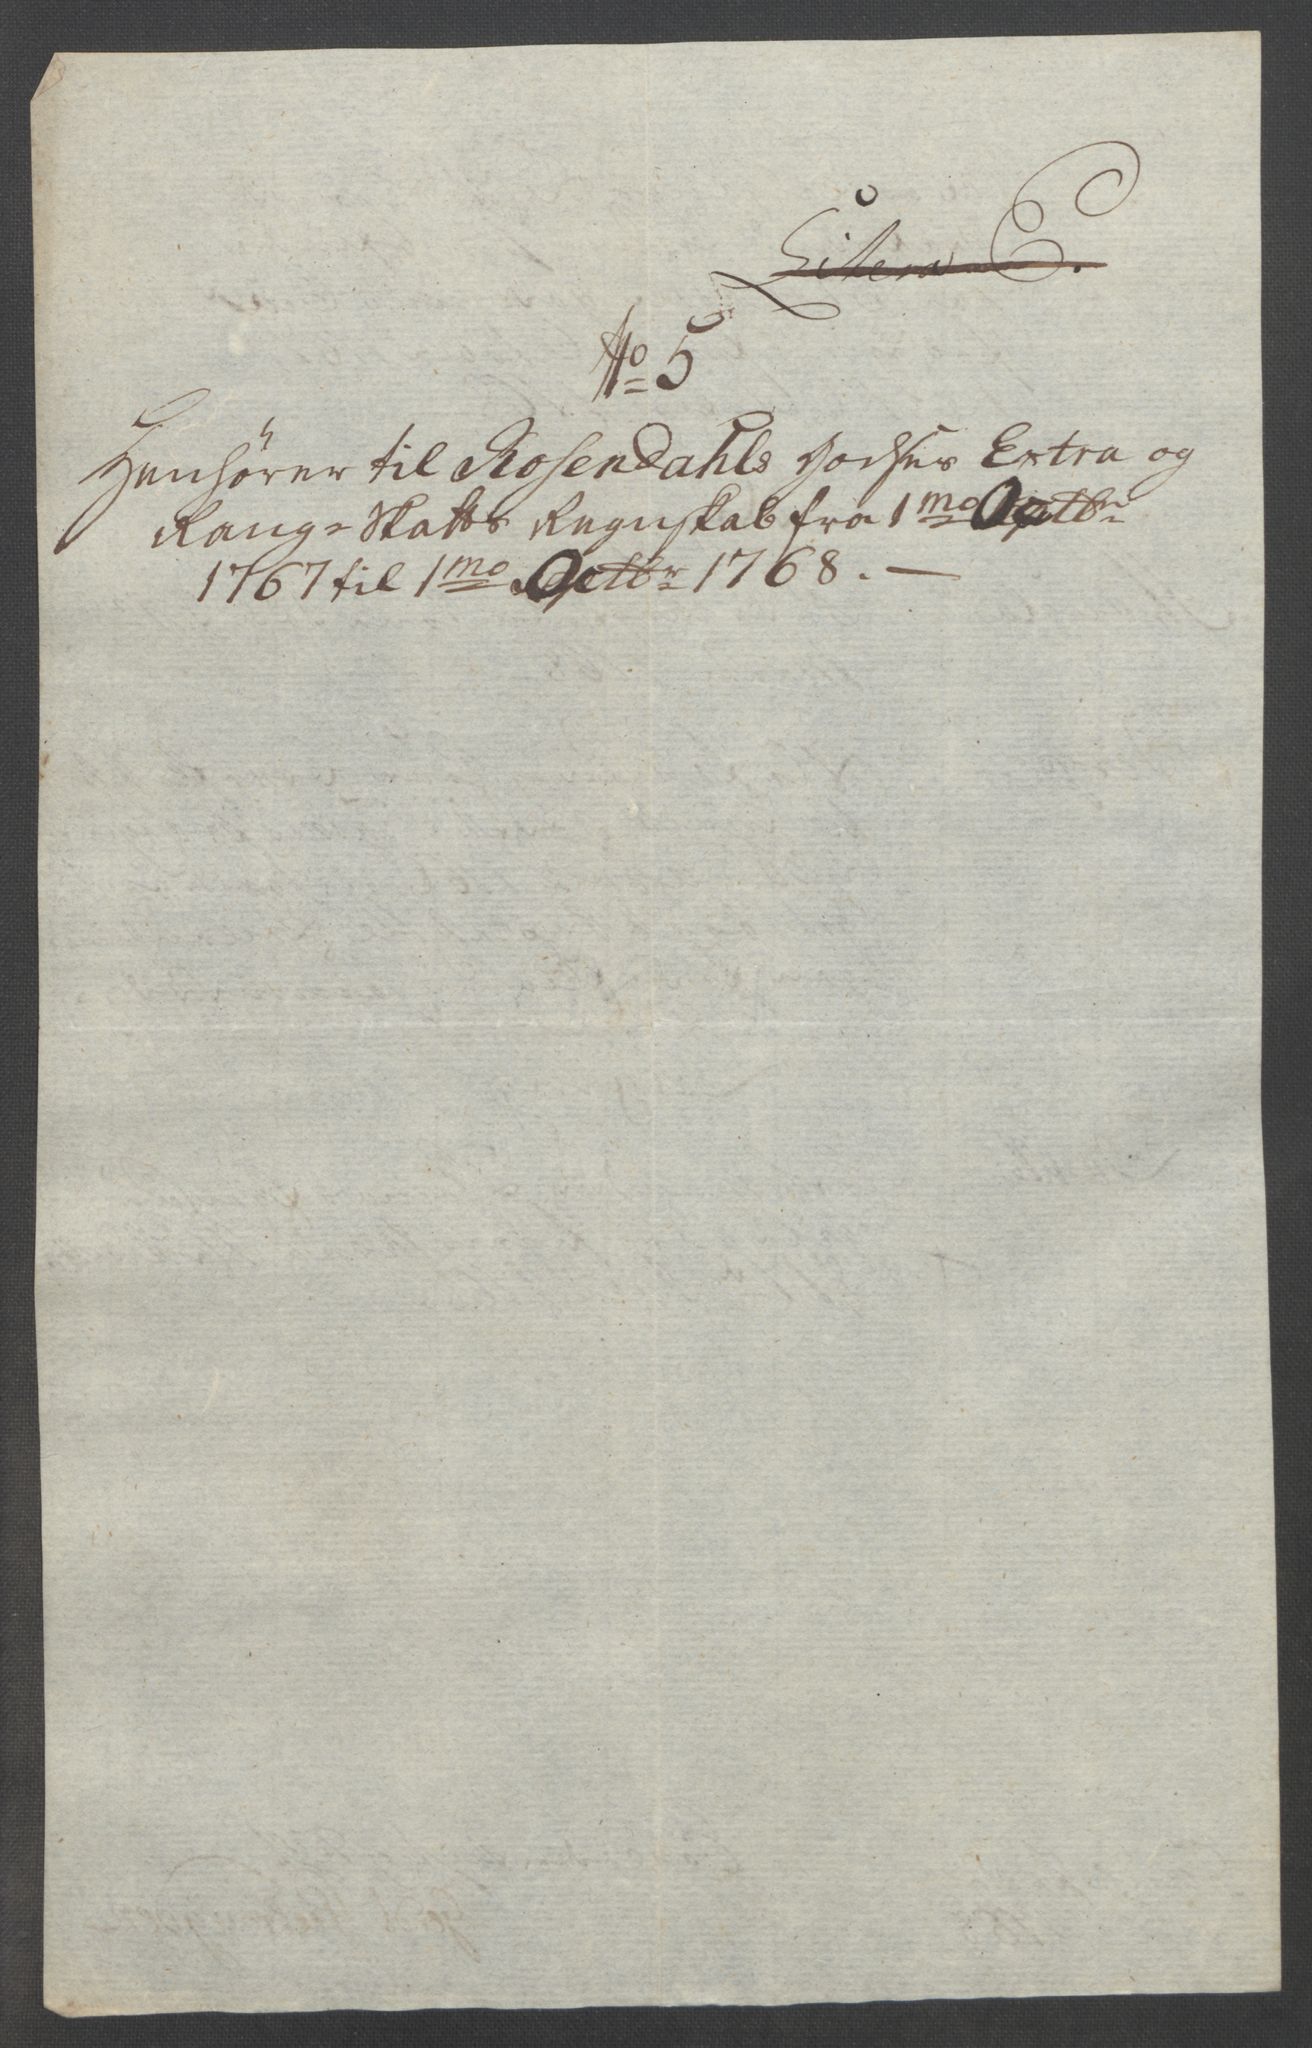 Litera C.
No 5
Henhører til Rosendahls Godses Extra og
Rang= Skatts Regnskab fra 1mo Octbr
1767 til 1mo Octbr 1768. —